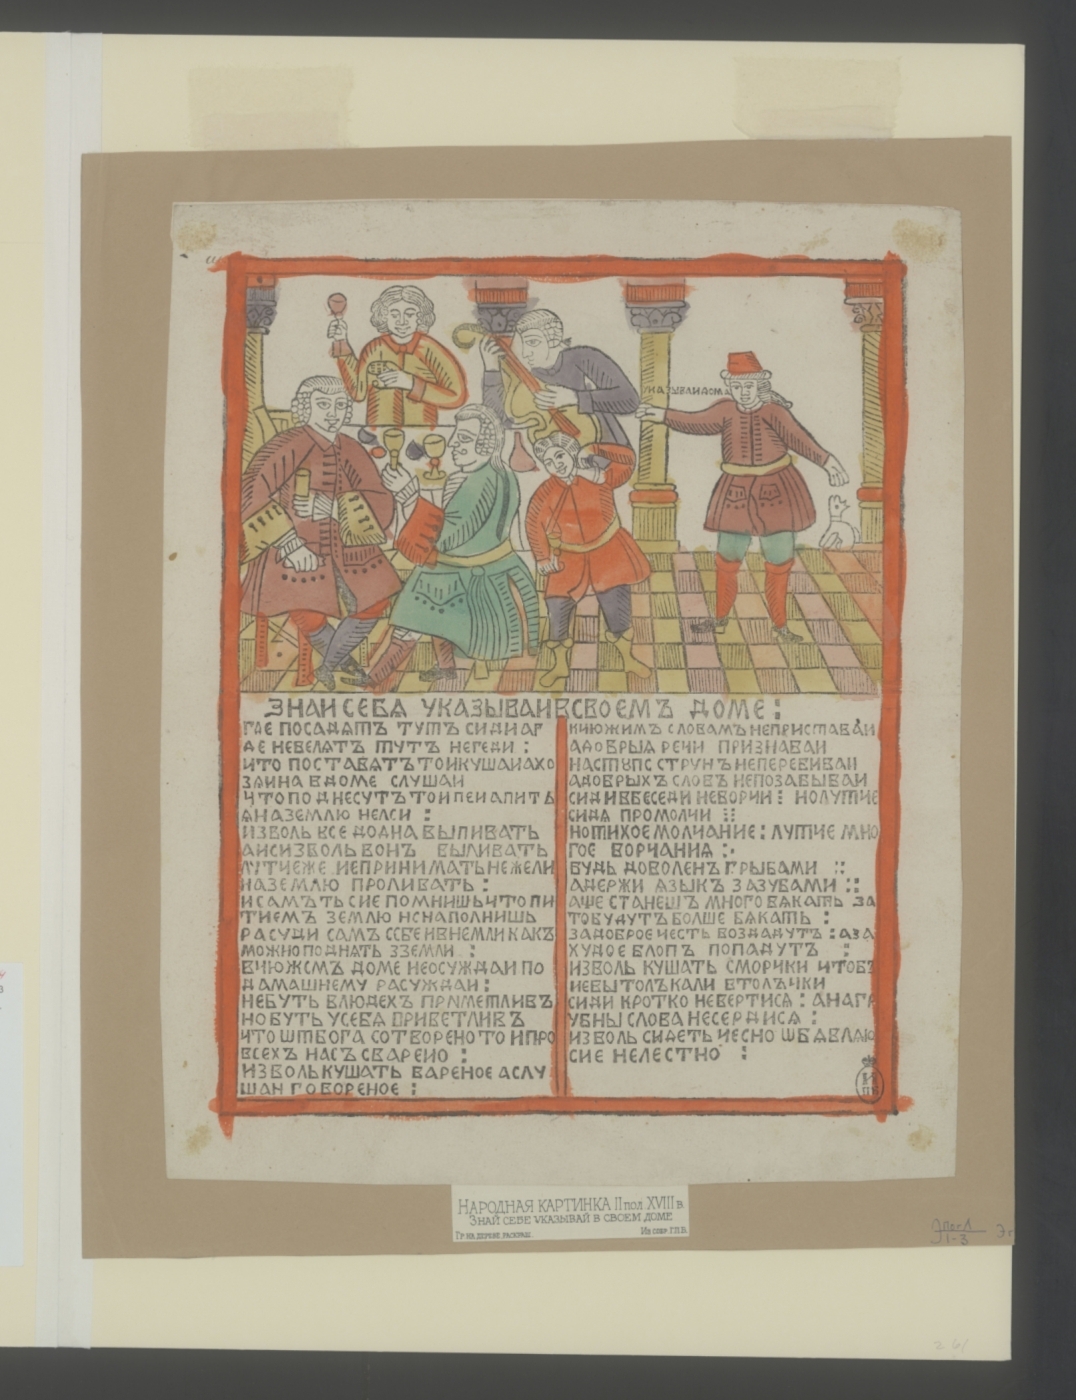 УКАЗЫВАИДОМА
ЗНАИ СЕБЯ УКАЗЫВАИ ВСВОЕМЪ ДОМЕ :
ГДЕ ПОСАДЯТЪ ТУТЪ СИДИ АГ
ДЕ НЕВЕЛЯТЪ ТУТЪ НЕГЕДИ :
ЧТО ПОСТАВЯТЪ ТО И КУШАИ АХО
ЗЯИНА В ДОМЕ СЛУШАИ
ЧТО ПОДНЕСУТЪ ТО И ПЕИ АЛИТЬ
ЯНАЗЕМЛЮ НЕЛСИ :
ИЗВОЛЬ ВСЕ ДОДНА ВЫПИВАТЬ
АИСИЗВОЛЬ ВОНЪ ВЫЛИВАТЬ
ЛУТЧЕЖЕ НЕПРИНИМАТЬ НЕЖЕЛИ
НАЗЕМЛЮ ПРОЛИВАТЬ :
И САМЪ ТЬ СИЕ ПОМНИШЬ ЧТО ПИ
ТИЕМЪ ЗЕМЛЮ НСНАПОЛНИШЬ
РАСУДИ САМЪ ССБЕ ИВНЕМЛИ КАКЪ
МОЖНО ПОДНЯТЬ ЗЗЕМЛИ :
ВЧЮЖСМЪ ДОМЕ НЕОСУЖДАИ ПО
ДАМАШНЕМУ РАСУЖДАИ :
НЕБУТЬ ВЛЮДЕХЪ ПРИМЕТЛИВЪ
НО БУТЬ УСЕБЯ ПРИВЕТЛИВЪ
ЧТО ШТБОГА СОТВОРЕНО ТО И ПРО
ВСЕХЪ НАСЪ СВАРЕНО :
ИЗВОЛЬ КУШАТЬ ВАРЕНОЕ АСЛУ
ШАИ ГОВОРЕНОЕ :
КЧЮЖИМЪ СЛОВАМЪ НЕПРИСТАВАИ
АДОБРЫЯ РЕЧИ ПРИЗНАВАИ
НАСТУПС СТРУНЪ НЕПЕРЕБИВАИ
АДОБРЫХЪ СЛОВЪ НЕПОЗАБЫВАИ
СИДИ ВБЕСЕДИ НЕВОРЧИ : НО ЛУТЧЕ
СИДЯ ПРОМОЛЧИ
НО ТИХОЕ МОЛЧАНИЕ : ЛУТЧЕ МНО
ГОЕ ВОРЧАНИЯ
БУДЬ ДОВОЛЕНЪ ГРЫБАМИ
АДЕРЖИ ЯЗЫКЪ ЗАЗУБАМИ
АЩЕ СТАНЕШЪ МНОГО ВЯКАТЬ ЗА
ТО БУДУТЪ БОЛШЕ БЯКАТЬ :
ЗАДОБРОЕ ЧЕСТЬ ВОЗДАДУТЪ : АЗА
ХУДОЕ ВЛОПЪ ПОПАДУТЪ :
ИЗВОЛЬ КУШАТЬ СМОРЧКИ ЧТОБЪ
НЕВЫТОЛЪКАЛИ ВТОЛЪЧКИ
СИДИ КРОТКО НЕВЕРТИСЯ : АНАГР
УБНЫ СЛОВА НЕСЕРДИСЯ :
ИЗВОЛЬ СИДЕТЬ ЧЕСНО ШБЯВЛЯЮ
СИЕ НЕЛЕСТНО :
НАРОДНАЯ КАРТИНКА II ПОЛ XVIII В.
ЗНАЙ СЕБЕ УКАЗЫВАЙ В СВОЕМ ДОМЕ
ГР НА ДЕРЕВЕ РАСКРАШ. ИЗ СОБР Г.П.Б.